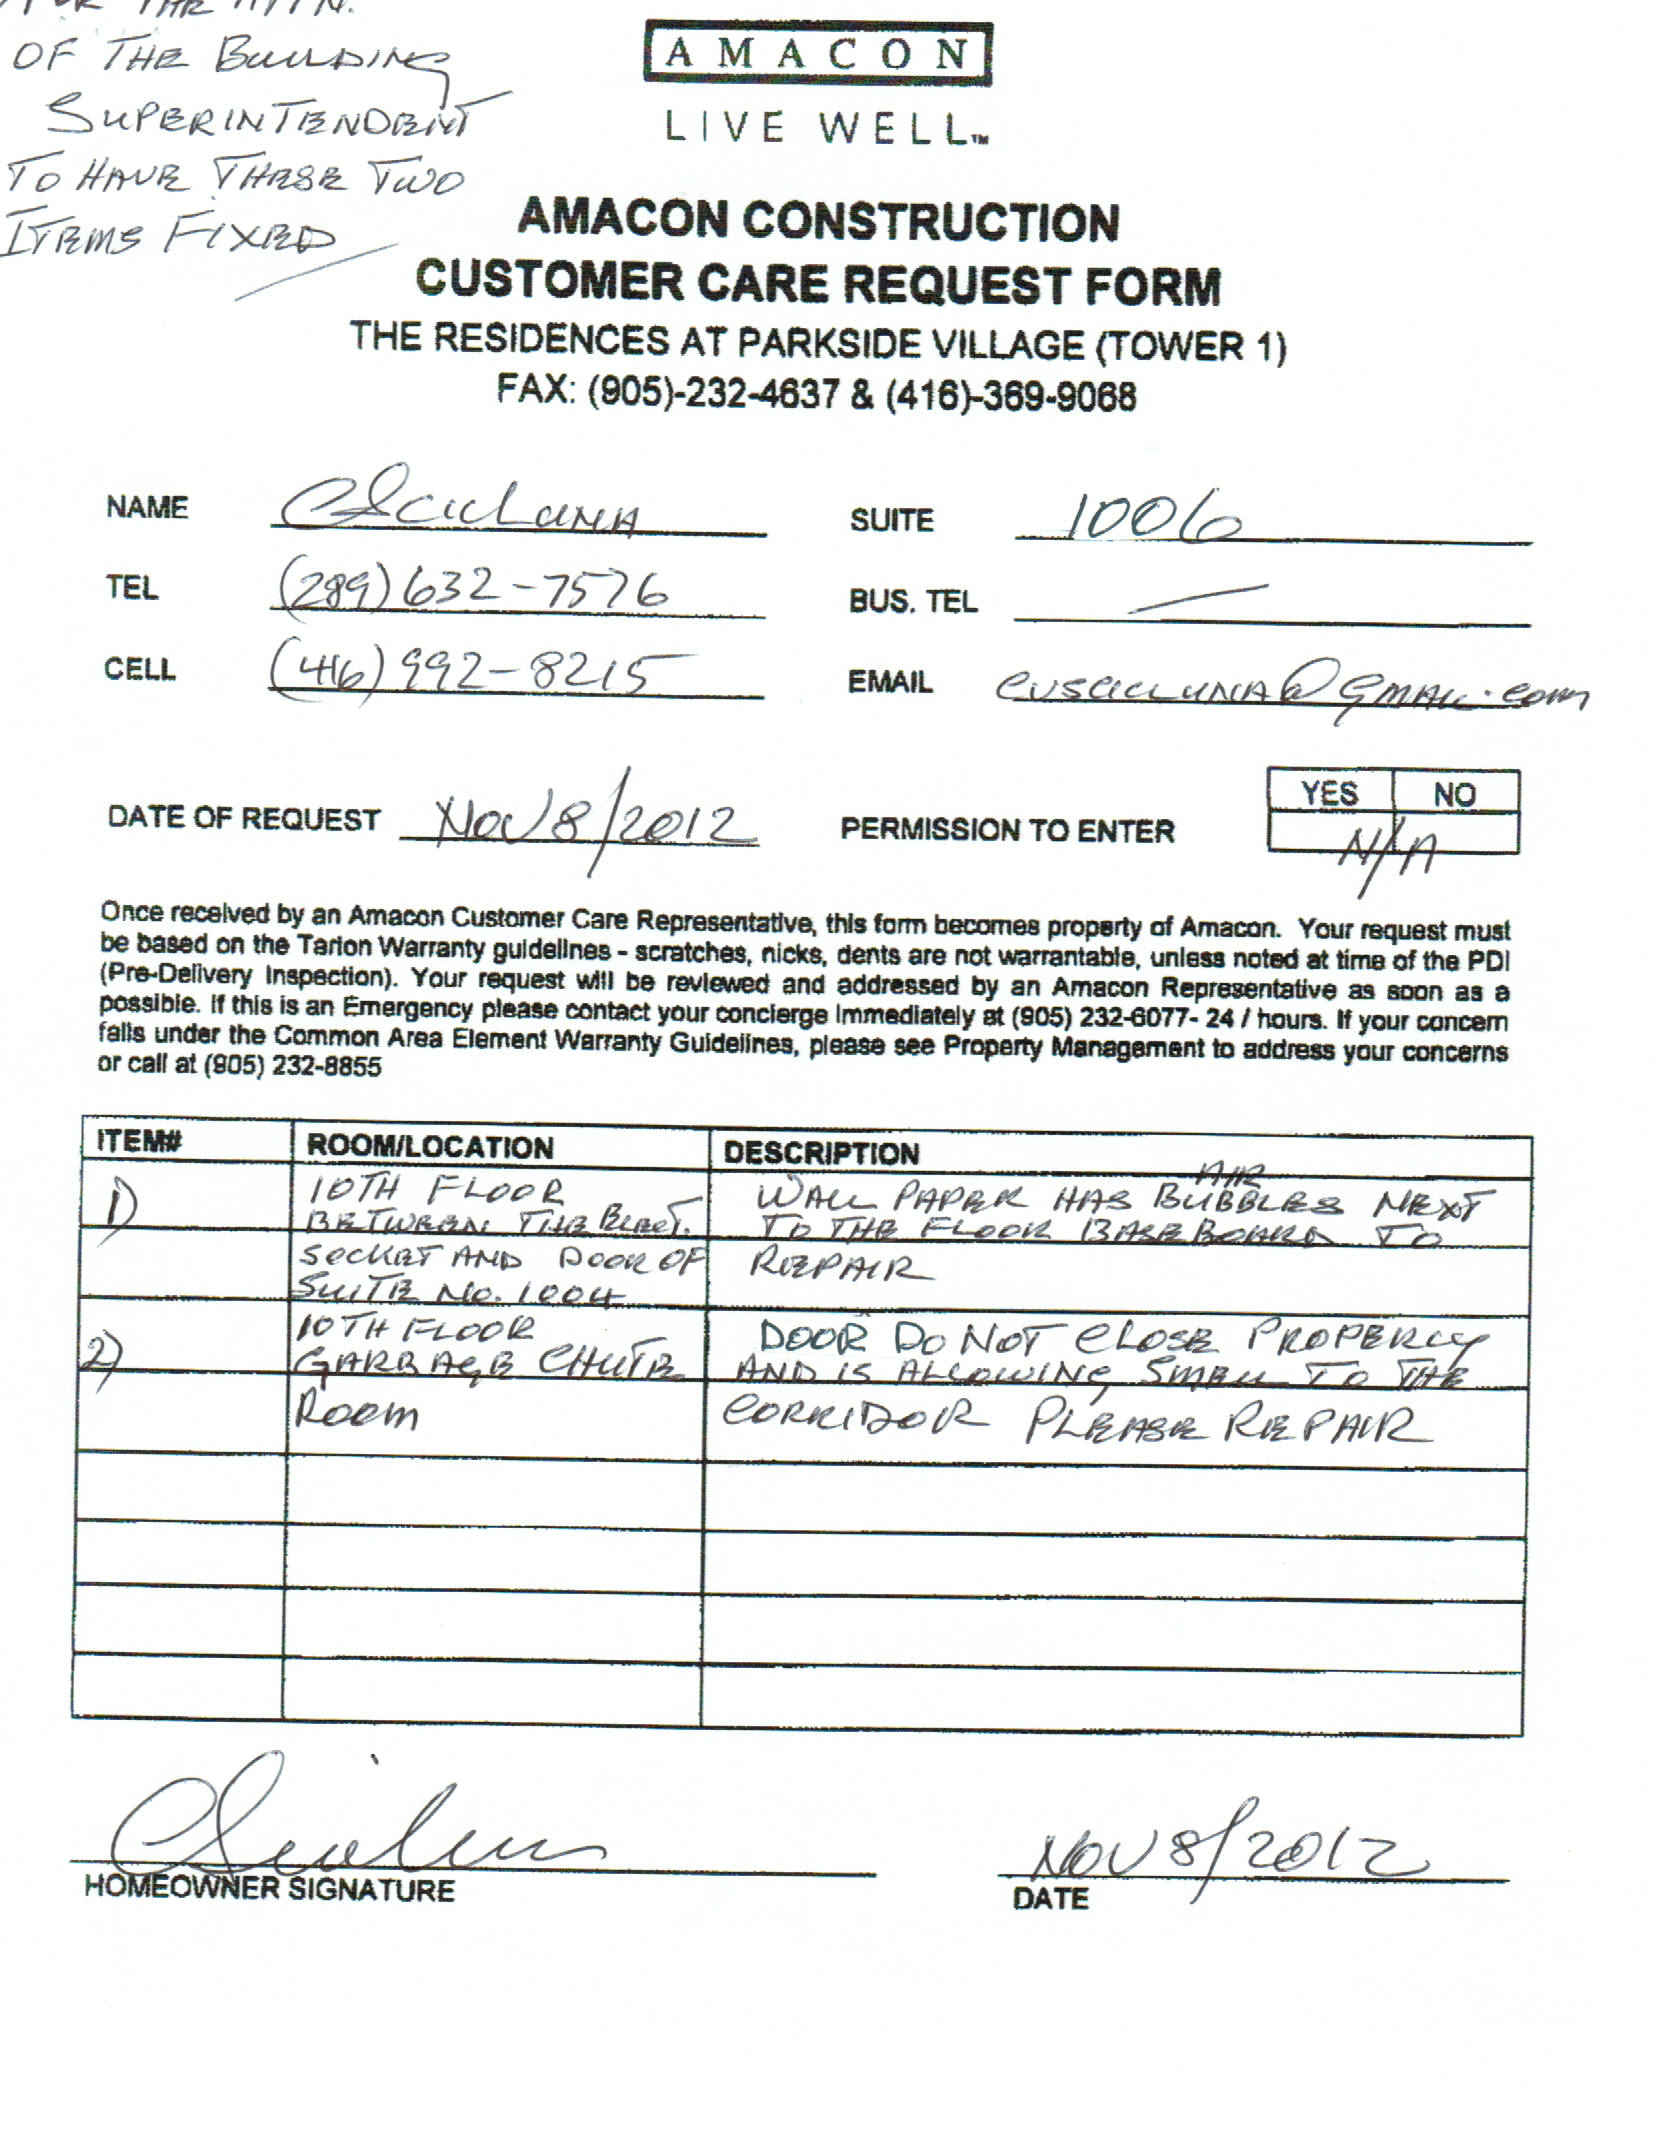 FOR THE ATTN.
OF THE BUILDING
SUPERINTENDENT
TO HAVE THESE TWO
ITEMS FIXED
AMACON
LIVE WELL™
AMACON CONSTRUCTION
CUSTOMER CARE REQUEST FORM
THE RESIDENCES AT PARKSIDE VILLAGE (TOWER 1)
FAX: (905)-232-4637 & (416)-369-9068
NAME CSCICLUNA SUITE 1006
TEL (289) 632-7576 BUS. TEL —
CELL (416) 992-8215 EMAIL cvscicluna@gmail.com
DATE OF REQUEST NOV 8/2012 PERMISSION TO ENTER YES NO
N/A
Once received by an Amacon Customer Care Representative, this form becomes property of Amacon. Your request must
be based on the Tarion Warranty guidelines - scratches, nicks, dents are not warrantable, unless noted at time of the PDI
(Pre-Delivery Inspection). Your request will be reviewed and addressed by an Amacon Representative as soon as a
possible. If this is an Emergency please contact your concierge immediately at (905) 232-6077- 24 / hours. If your concern
falls under the Common Area Element Warranty Guidelines, please see Property Management to address your concerns
or call at (905) 232-8855
ITEM# ROOM/LOCATION DESCRIPTION
1) 10TH FLOOR
BETWEEN THE ELECT.
SOCKET AND DOOR OF
SUITE NO. 1004
WALL PAPER HAS AIR BUBBLES NEXT
TO THE FLOOR BASEBOARD TO
REPAIR
2) 10TH FLOOR
GARBAGE CHUTE
ROOM
DOOR DO NOT CLOSE PROPERLY
AND IS ALLOWING SMELL TO THE
CORRIDOR PLEASE REPAIR
HOMEOWNER SIGNATURE
NOV 8/2012
DATE